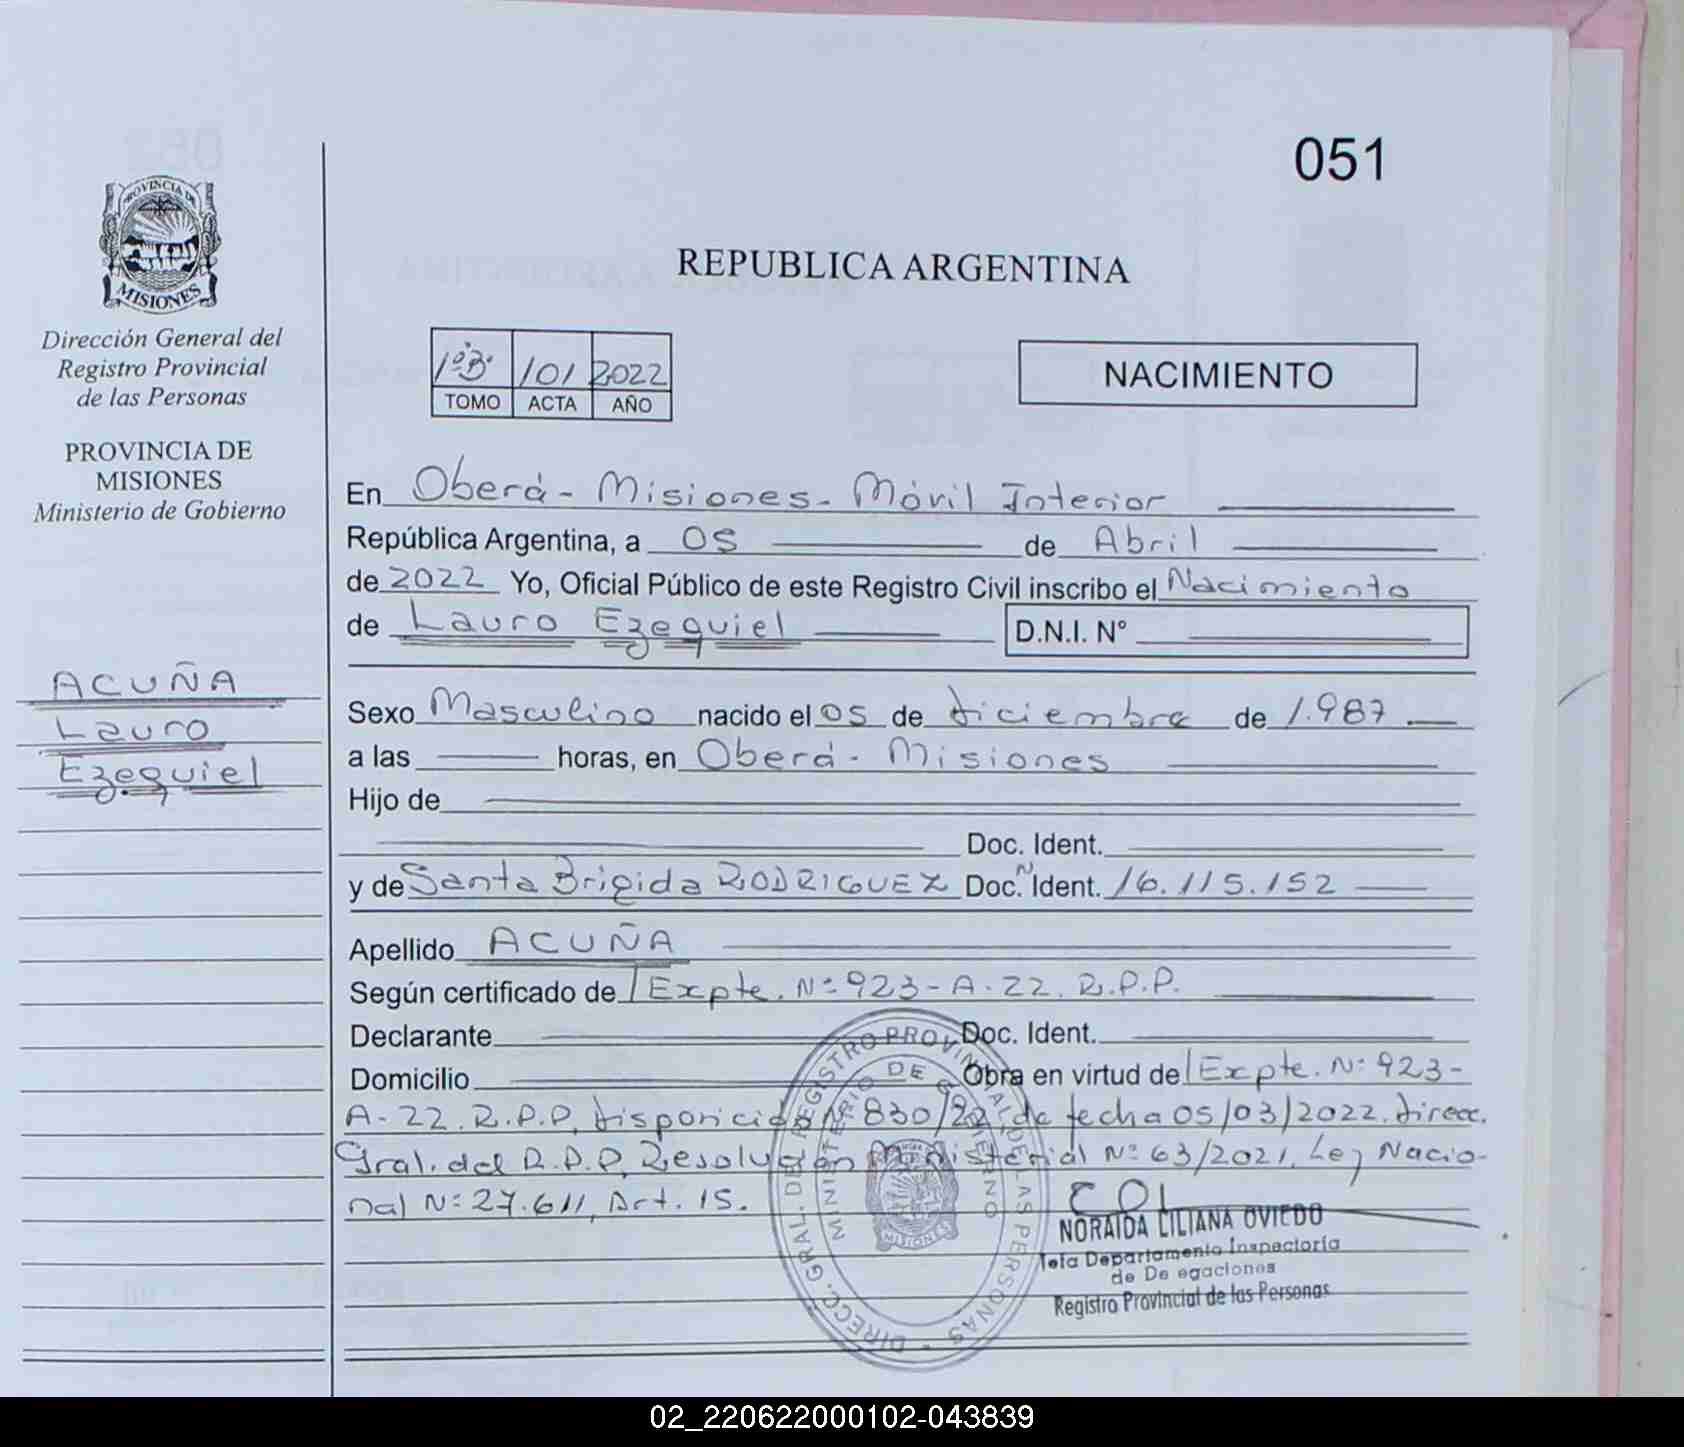 051
PROVINCIA DE
MISIONES
Dirección General del
Registro Provincial
de las Personas
PROVINCIA DE
MISIONES
Ministerio de Gobierno
ACUÑA
Lauro
Ezequiel
REPUBLICA ARGENTINA
1º"B" 101 2022
TOMO ACTA AÑO
NACIMIENTO
En Oberá - Misiones - Móvil Interior
República Argentina, a 05 de Abril
de 2022 Yo, Oficial Público de este Registro Civil inscribo el Nacimiento
de Lauro Ezequiel D.N.I. N°
Sexo Masculino nacido el 05 de diciembre de 1.987
a las horas, en Oberá - Misiones
Hijo de
Doc. Ident.
y de Santa Brigida RODRIGUEZ Doc. N Ident. 16.115.152
Apellido ACUÑA
Según certificado de/Expte. Nº 923-A-22. R.P.P.
Declarante Doc. Ident.
Domicilio Obra en virtud de/Expte. Nº 923-
A-22. R.P.P, disposición Nº 830/22, de fecha 05/03/2022. direcc.
Gral. del R.P.P, Resolución Ministerial Nº 63/2021, Ley Nacio-
nal Nº 27.611, Art. 15.
DIRECC. GRAL. DEL REGISTRO PROVINCIAL DE LAS PERSONAS
MINISTERIO DE GOBIERNO
MISIONES
NORAIDA LILIANA OVIEDO
Jefa Departamento Inspectoría
de De egaciones
Registro Provincial de las Personas
02_220622000102-043839